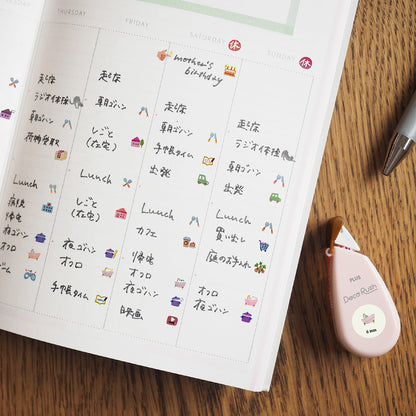 THURSDAY
FRIDAY
SATURDAY 休
SUNDAY 休
mother's
birthday
ラジオ体操
朝ゴハン
荷物受取
Lunch
帰宅
オフロ
ゲーム
起床
朝ゴハン
しごと
(在宅)
Lunch
しごと
(在宅)
夜ゴハン
オフロ
手帳タイム
起床
朝ゴハン
手帳タイム
出発
Lunch
カフェ
帰宅
オフロ
夜ゴハン
映画
起床
ラジオ体操
朝ゴハン
出発
Lunch
買い出し
庭のお手入れ
オフロ
夜ゴハン
PLUS
Deco Rush
6 mm